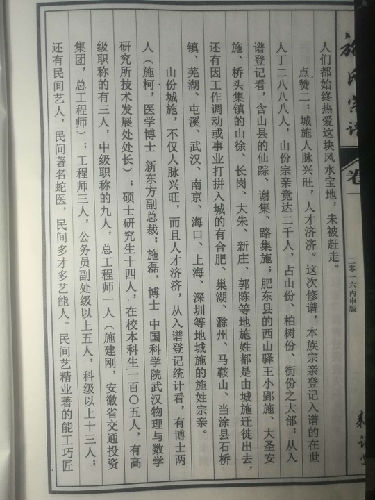 施氏宗谱 卷
二〇一六丙申版
人们都始终热爱这块风水宝地，未被赶走。
点赞二：城施人脉兴旺，人才济济。这次修谱，本族宗亲登记入谱的在世
人丁二八八八人，山份宗亲竟达二千人，占山份、柏树份、街份之大部；从入
谱登记看，含山县的仙踪、谢集、略集施；肥东县的西山驿王小郢施、大圣安
施、桥头集镇的山徐、长岗、大朱、新庄、郭陈等地施姓都是由城施迁徙出去，
还有因工作调动或事业打拼入城的有合肥、巢湖、滁州、马鞍山、当涂县石桥
镇、芜湖、屯溪、武汉、南京、海口、上海、深圳等地城施的施姓宗亲。
山份城施，不仅人脉兴旺，而且人才济济，从入谱登记统计看，有博士两
人（施柯，医学博士 新东方副总裁；施磊，博士 中国科学院武汉物理与数学
研究所技术发展处处长）；硕士研究生十四人，在校本科生一百〇五人，有高
级职称的有三人，中级职称的九人，总工程师一人（施建刚，安徽省交通投资
集团，总工程师）；工程师三人，公务员副处级以上五人，科级以上十三人；
还有民间艺人，民间著名蛇医，民间多才多艺能人。民间艺精业著的能工巧匠